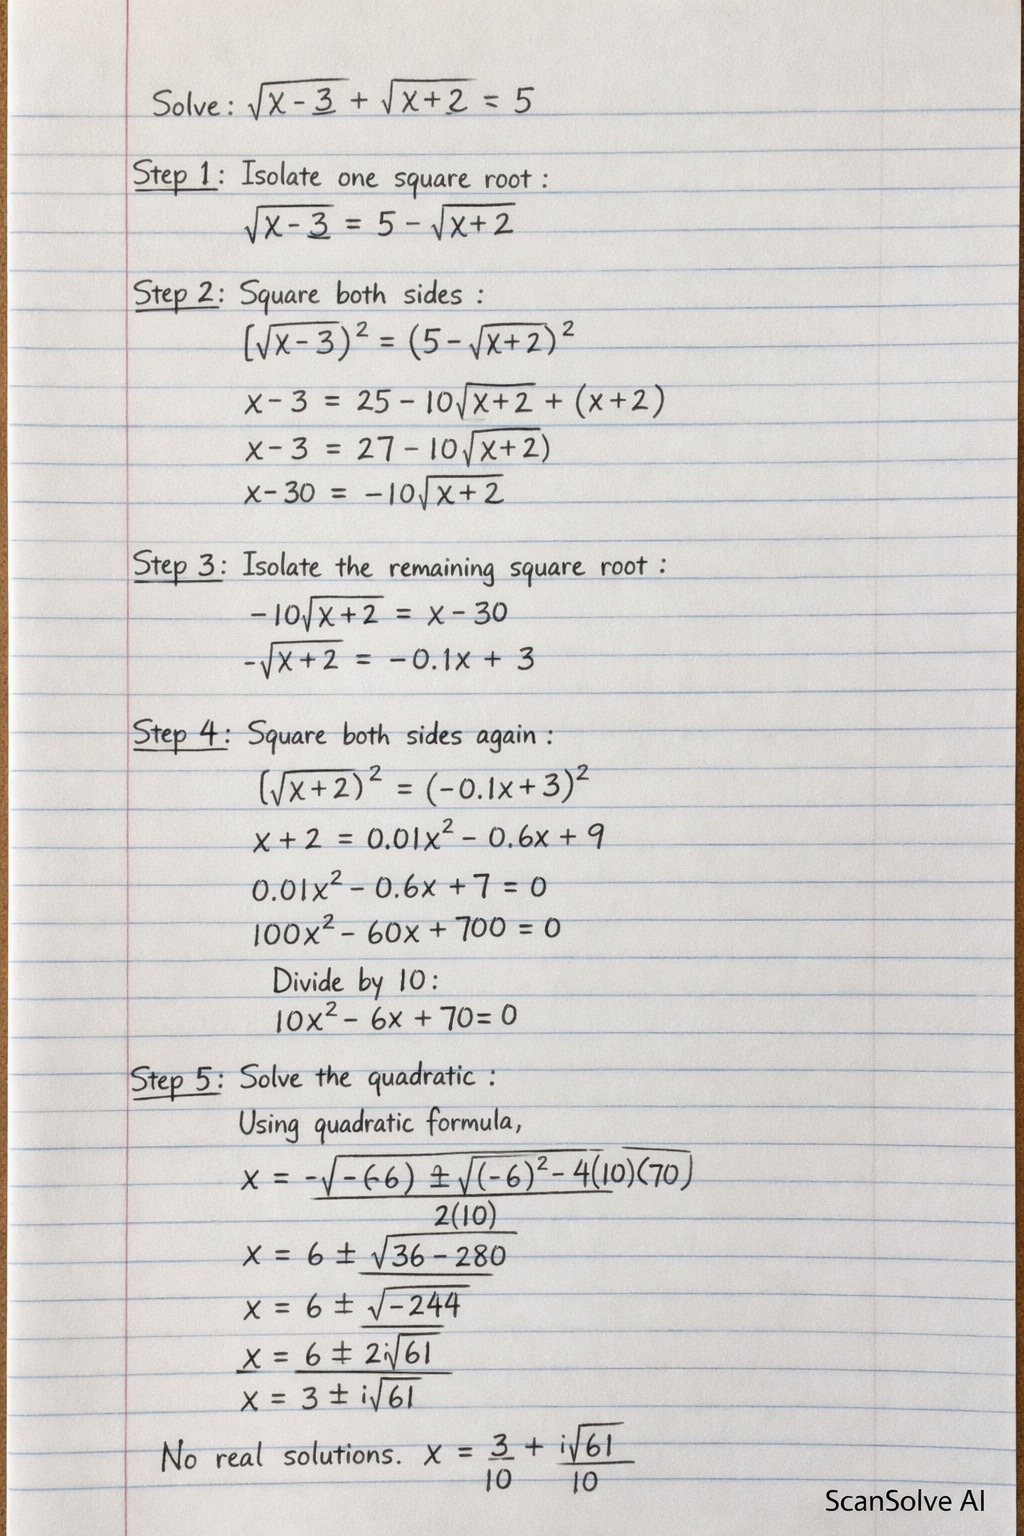 Solve: √x - 3 + √x + 2 = 5
Step 1: Isolate one square root :
√x - 3 = 5 - √x + 2
Step 2: Square both sides :
(√x - 3)² = (5 - √x + 2)²
x - 3 = 25 - 10√x + 2 + (x + 2)
x - 3 = 27 - 10√x + 2)
x - 30 = -10√x + 2
Step 3: Isolate the remaining square root :
-10√x + 2 = x - 30
-√x + 2 = -0.1x + 3
Step 4: Square both sides again :
(√x + 2)² = (-0.1x + 3)²
x + 2 = 0.01x² - 0.6x + 9
0.01x² - 0.6x + 7 = 0
100x² - 60x + 700 = 0
Divide by 10:
10x² - 6x + 70 = 0
Step 5: Solve the quadratic :
Using quadratic formula,
x = -√-(-6) ± √(-6)² - 4(10)(70)
2(10)
x = 6 ± √36 - 280
x = 6 ± √-244
x = 6 ± 2i√61
x = 3 ± i√61
No real solutions. x = 3/10 + i√61/10
ScanSolve AI